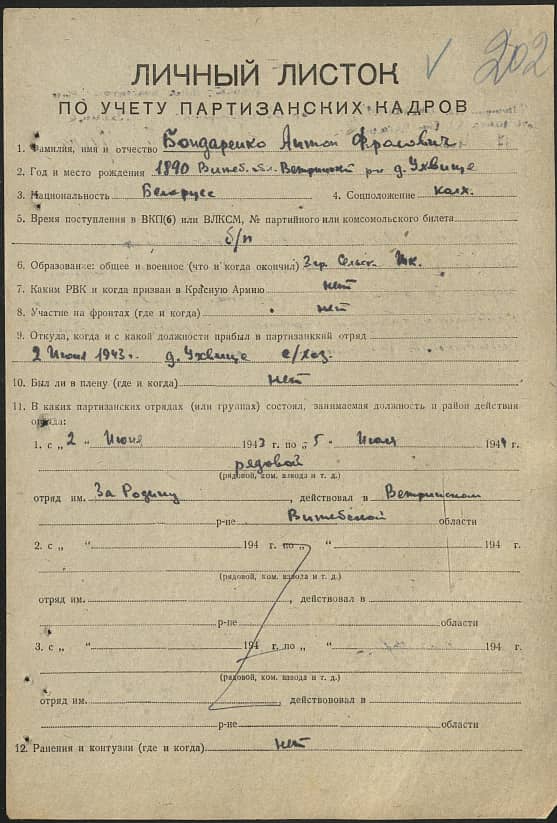 202
ЛИЧНЫЙ ЛИСТОК
ПО УЧЕТУ ПАРТИЗАНСКИХ КАДРОВ
1. Фамилия, имя и отчество Бондаренко Антон Фролович
2. Год и место рождения 1890 Витеб. обл. Ветринский р-н д. Ухвище
3. Национальность Беларусс 4. Соцположение колх.
5. Время поступления в ВКП(б) или ВЛКСМ, № партийного или комсомольского билета
б/п
6. Образование: общее и военное (что и когда окончил) 3 гр. Сельск. шк.
7. Каким РВК и когда призван в Красную Армию нет
8. Участие на фронтах (где и когда) нет
9. Откуда, когда и с какой должности прибыл в партизанский отряд
2 Июня 1943 г. д. Ухвище с/хоз.
10. Был ли в плену (где и когда) нет
11. В каких партизанских отрядах (или группах) состоял, занимаемая должность и район действия
отряда:
1. с „ 2 “ Июня 1943 г. по „ 5 “ Июля 1944 г.
рядовой
(рядовой, ком. взвода и т. д.)
отряд им. За Родину, действовал в Ветринском
р-не Витебской области
2. с „ “ 194 г. по „ “ 194 г.
(рядовой, ком. взвода и т. д.)
отряд им. , действовал в
р-не области
3. с „ “ 194 г. по „ “ 194 г.
(рядовой, ком. взвода и т. д.)
отряд им. действововал в
р-не области
12. Ранения и контузии (где и когда) нет